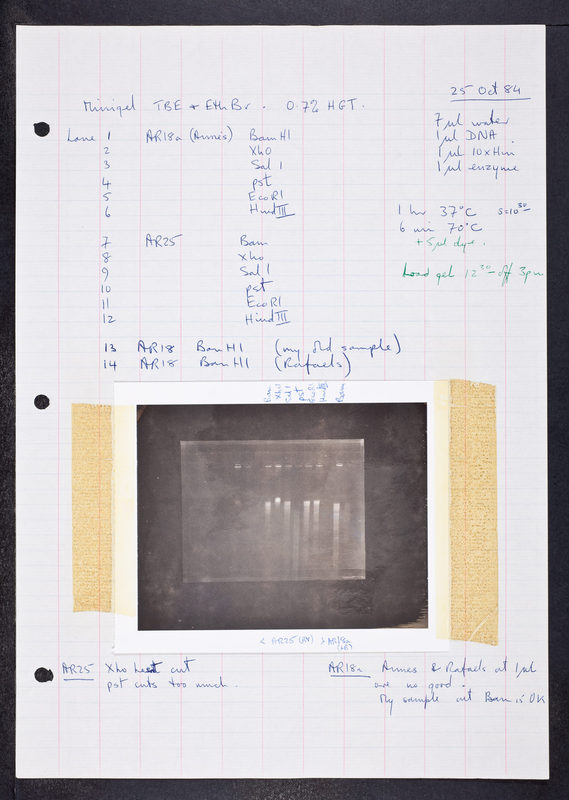 25 Oct 84
Minigel TBE + Eth Br. 0.7% HGT.
7 µl water
1 µl DNA.
1 µl 10xHin
1 µl enzyme
Lane 1 AR18a (Annes) Bam H1
2 Xho
3 Sal 1
4 pst
5 EcoR1
6 Hind III
1 hr 37°C s=10³⁰
6 min 70°C
+ 5 µl dye.
7 AR25 Bam
8 Xho
9 Sal 1
10 pst
11 EcoR1
12 Hind III
Load gel 12³⁰ – off 3pm
13 AR18 Bam H1 (my old sample)
14 AR18 Bam H1 (Rafaels)
Bam
Xho
Sal 1
Pst
EcoR1
Hind III
Bam
< AR25 > AR18a
AR25 Xho cut
pst cuts too much.
AR18a Annes & Rafaels at 1 µl
are no good.
My sample cut Bam is OK